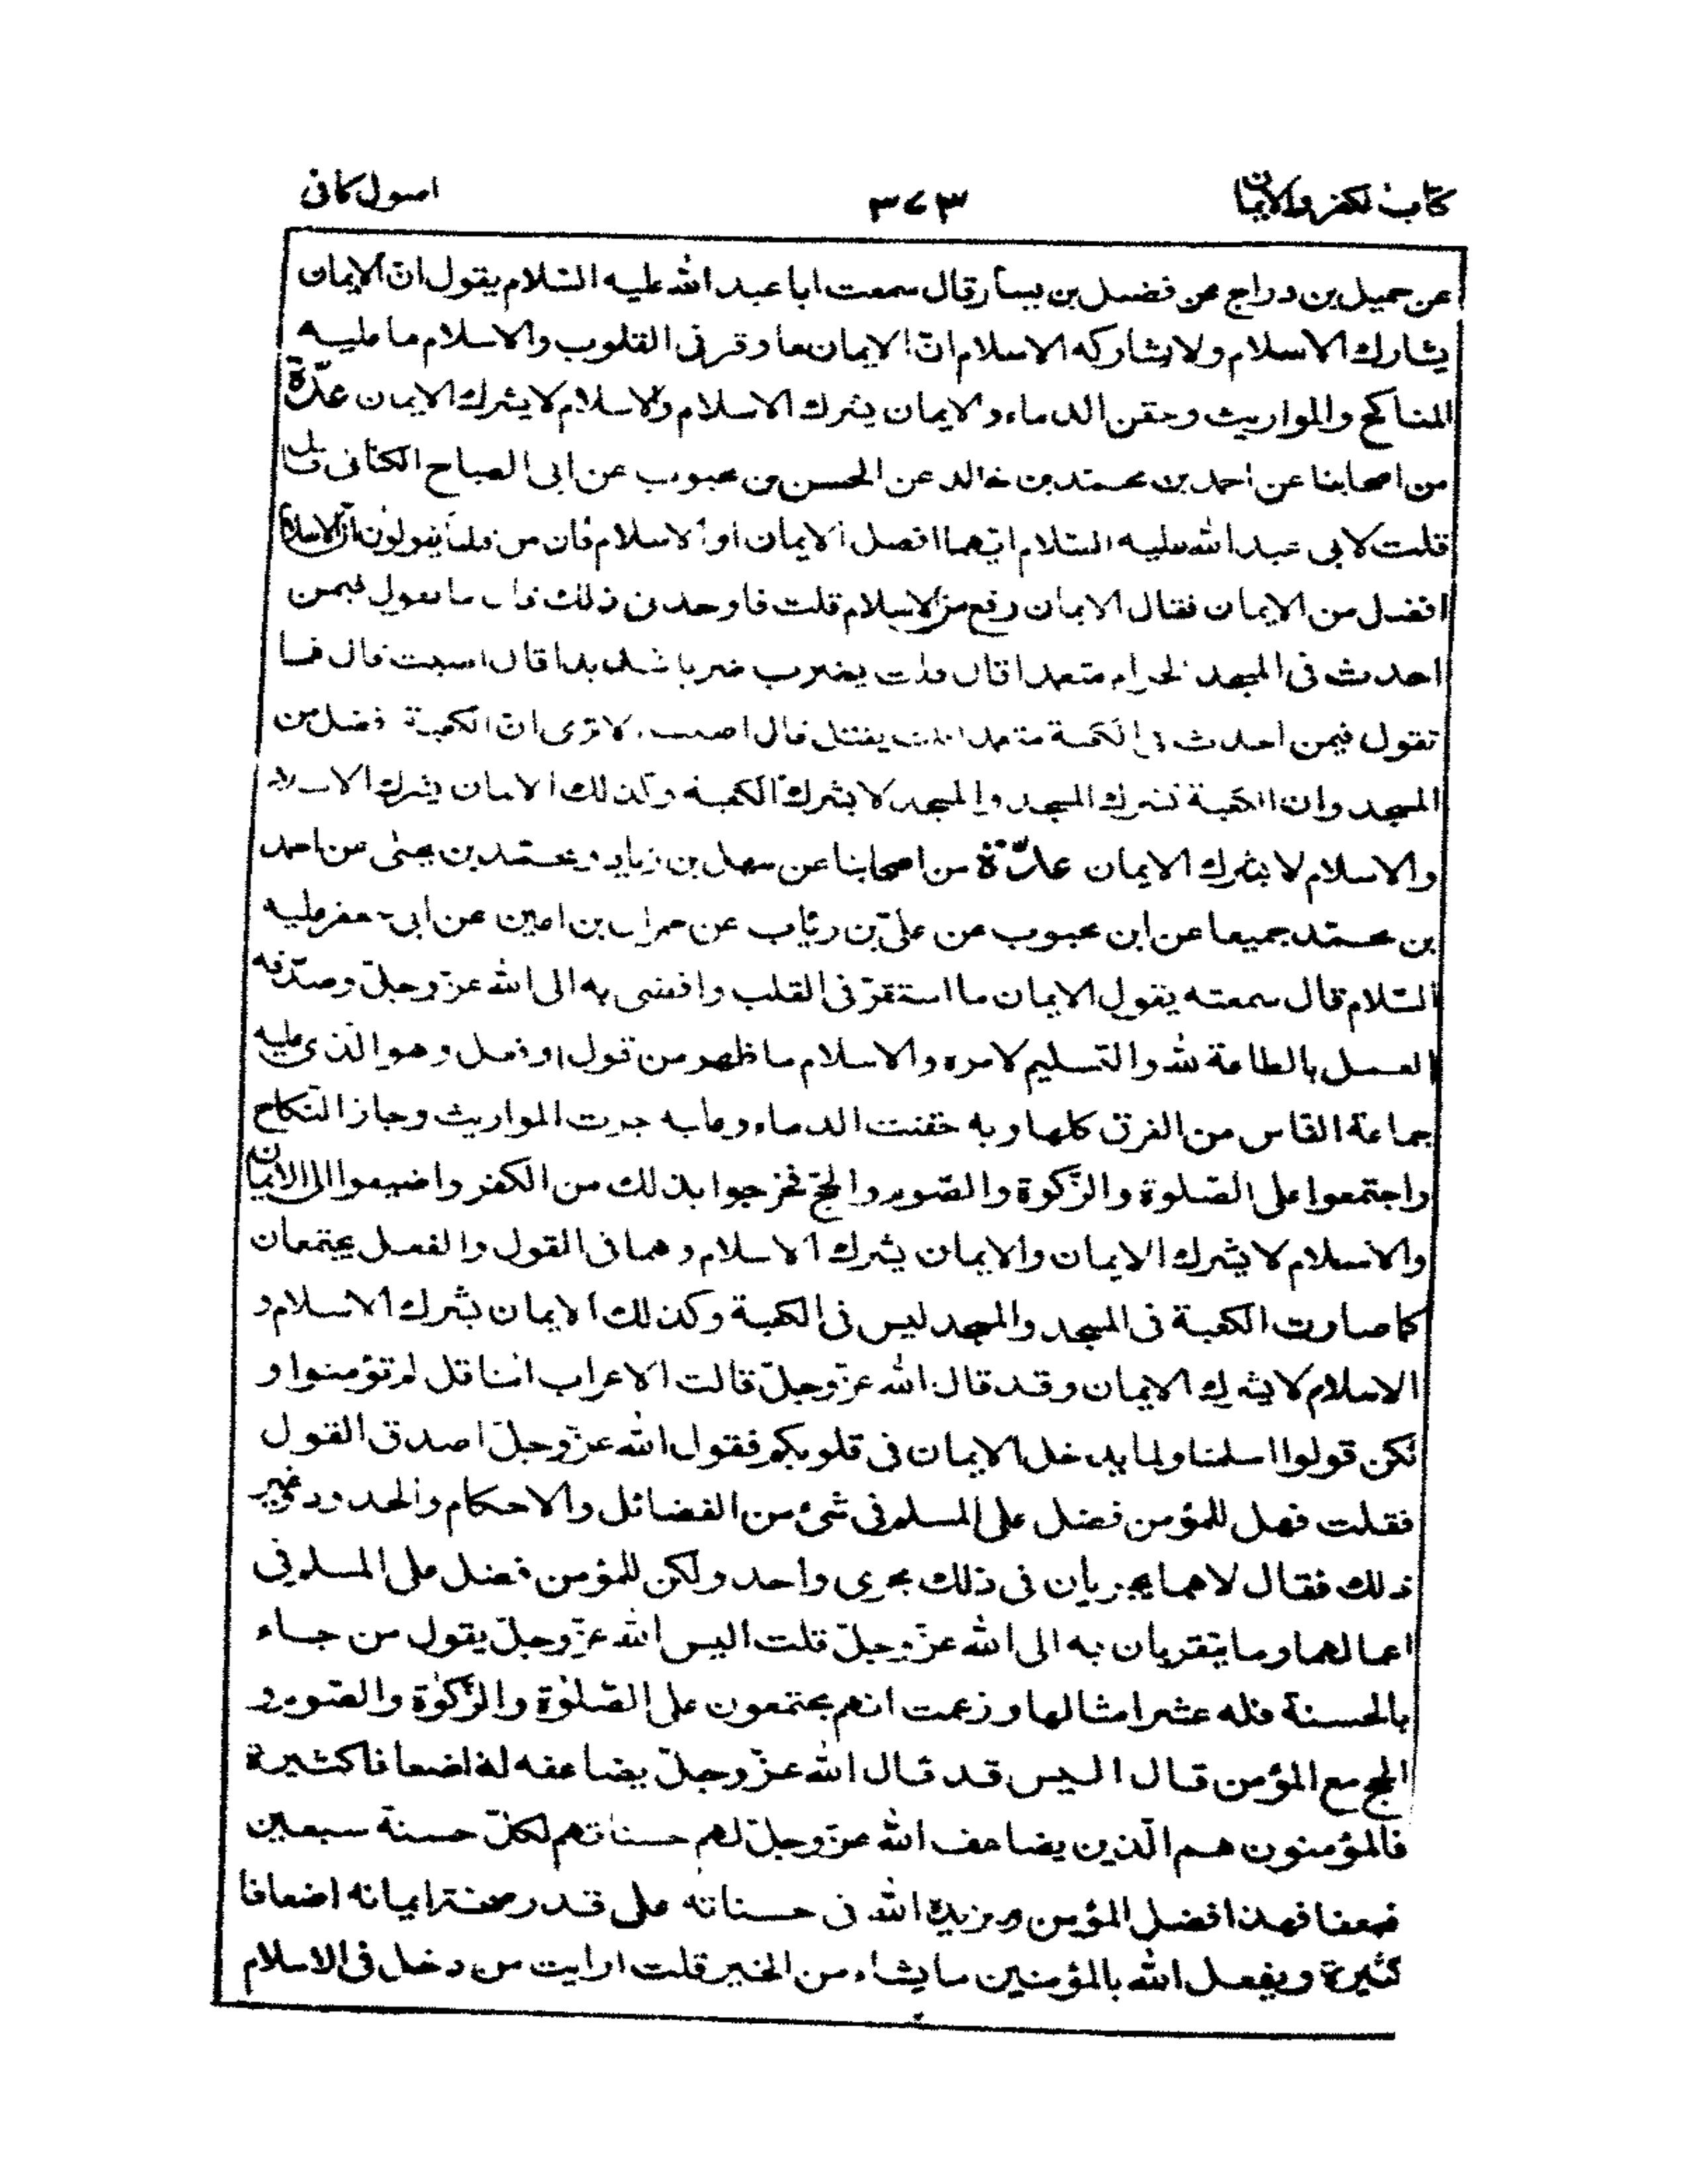 كتاب الكفر والايمان
٣٧٣
اصول كافى
عن جميل بن دراج عن فضيل بن يسار قال سمعت ابا عبد الله عليه السّلام يقول انّ الايمان
يشارك الاسلام ولا يشاركه الاسلام انّ الايمان ما وقر فى القلوب والاسلام ما عليه
المناكح والمواريث وحقن الدماء والايمان يشرك الاسلام والاسلام لا يشرك الايمان عدّة
من اصحابنا عن احمد بن محمّد بن خالد عن الحسن بن محبوب عن ابى الصباح الكنانى قال
قلت لابى عبد الله عليه السّلام ايّهما افضل الايمان او الاسلام فان من قبلنا يقولون انّ الاسلام
افضل من الايمان فقال الايمان ارفع من الاسلام قلت فاوجدنى ذلك قال ما تقول فيمن
احدث فى المسجد الحرام متعمدا قال قلت يضرب ضربا شديدا قال اصبت قال فما
تقول فيمن احدث فى الكعبة متعمدا قلت يقتل قال اصبت الا ترى انّ الكعبة افضل من
المسجد وان الكعبة تشرك المسجد والمسجد لا يشرك الكعبة وكذلك الايمان يشرك الاسلام
والاسلام لا يشرك الايمان عدّة من اصحابنا عن سهل بن زياد ومحمّد بن يحيى عن احمد
بن محمّد جميعا عن ابن محبوب عن علىّ بن رئاب عن حمران بن اعين عن ابى جعفر عليه
السّلام قال سمعته يقول الايمان ما استقرّ فى القلب وافضى به الى الله عزّ وجلّ وصدّقه
العمل بالطاعة لله والتسليم لامره والاسلام ما ظهر من قول او فعل وهو الّذى عليه
جماعة النّاس من الفرق كلها وبه حقنت الدماء وعليه جرت المواريث وجاز النّكاح
واجتمعوا على الصّلوة والزّكوة والصّوم والحجّ فخرجوا بذلك من الكفر واضيفوا الى الايمان
والاسلام لا يشرك الايمان والايمان يشرك الاسلام وهما فى القول والفعل يجتمعان
كما صارت الكعبة فى المسجد والمسجد ليس فى الكعبة وكذلك الايمان يشرك الاسلام و
الاسلام لا يشرك الايمان وقد قال الله عزّ وجلّ قالت الاعراب امنا قل لم تؤمنوا و
لكن قولوا اسلمنا ولما يدخل الايمان فى قلوبكم فقول الله عزّ وجلّ اصدق القول
فقلت فهل للمؤمن فضل على المسلم فى شئ من الفضائل والاحكام والحدود وغير
ذلك فقال لا هما يجريان فى ذلك مجرى واحد ولكن للمؤمن فضل على المسلم فى
اعمالهما وما يتقربان به الى الله عزّ وجلّ قلت اليس الله عزّ وجلّ يقول من جاء
بالحسنة فله عشر امثالها وزعمت انهم مجتمعون على الصّلوة والزّكوة والصّوم و
الحج مع المؤمن قال اليس قد قال الله عزّ وجلّ يضاعفه له اضعافا كثيرة
فالمؤمنون هم الّذين يضاعف الله عزّ وجلّ لهم حسناتهم لكلّ حسنة سبعين
ضعفا فهذا فضل المؤمن ويزيده الله فى حسناته على قدر صحّة ايمانه اضعافا
كثيرة ويفعل الله بالمؤمنين ما يشاء من الخير قلت ارايت من دخل فى الاسلام